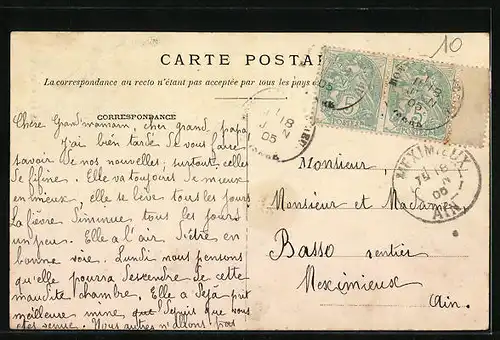 10
CARTE POSTALE
La correspondance au recto n'étant pas acceptée par tous les pays
CORRESPONDANCE
Chère Grand'maman, cher grand papa,
J'ai bien tardé de vous faire
savoir de nos nouvelles, surtout celles
de Fifine. Elle va toujours de mieux
en mieux, elle se lève tous les jours
La fièvre diminue tous les jours
un peu. Elle a l'air d'être en
bonne voie. Lundi nous pensons
qu'elle pourra descendre de cette
maudite chambre. Elle a déjà prit
meilleure mine que depuis que vous
êtes venue. Nous autres n'allons pas
Monsieur
Monsieur et Madame
Basso rentier
Meximieux
Ain.
POSTES
18
JUIN
05
MEXIMIEUX
18
05
AIN